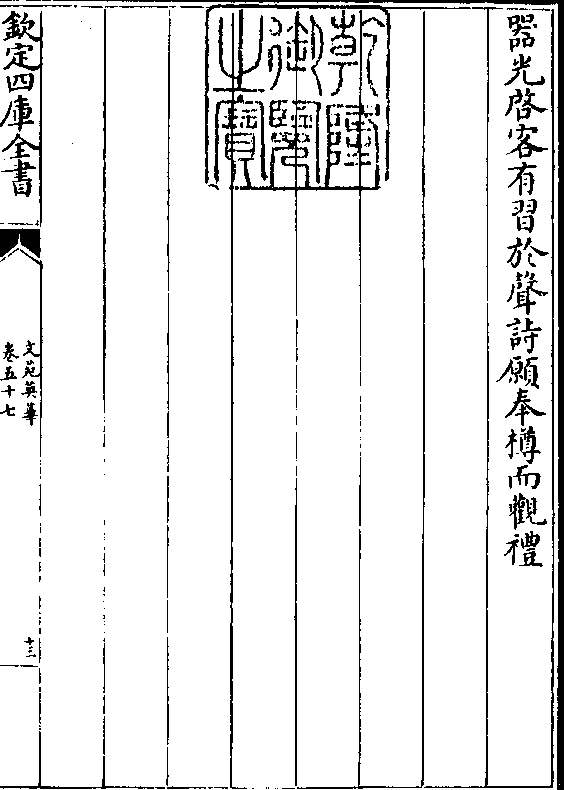 器光啓客有習於聲詩願奉樽而觀禮
乾隆
御覽
之寶
欽定四庫全書
文苑英華
卷五十七
十三